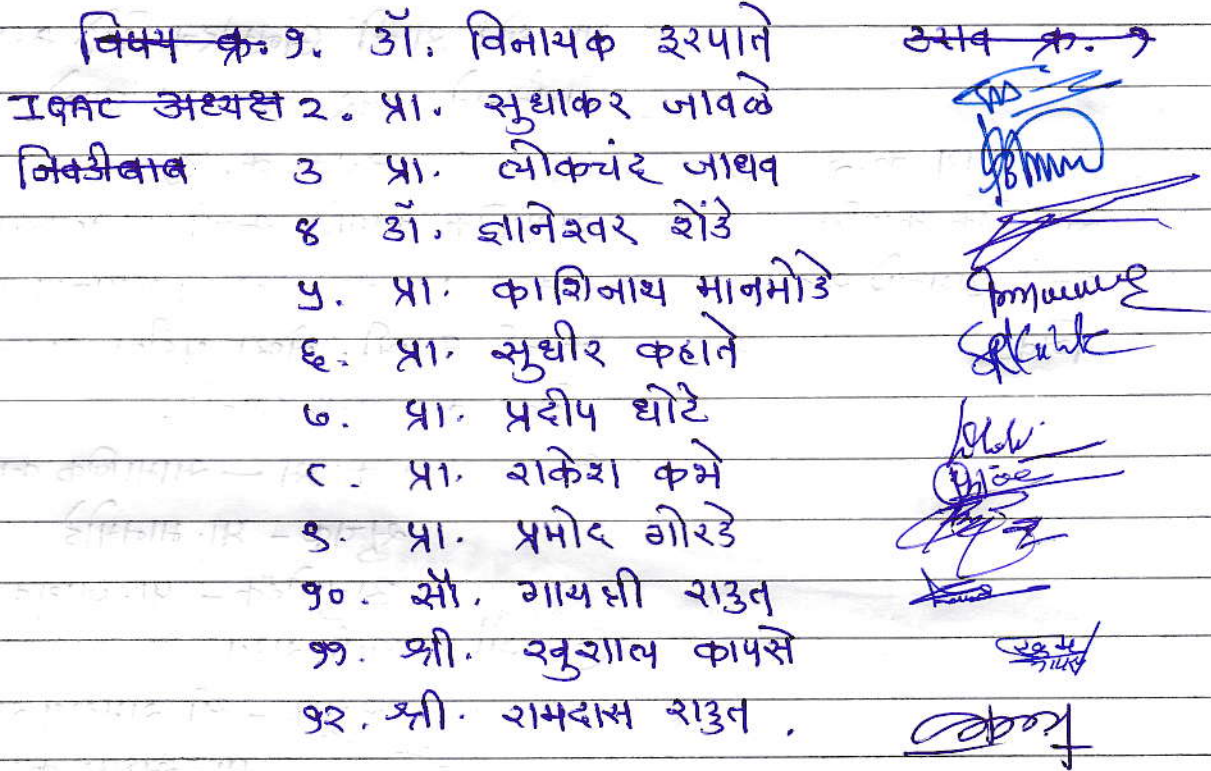 विषय क्र. १. डॉ. विनायक इरपाते ठराव क्र. १
IQAC अध्यक्ष २. प्रा. सुधाकर जावळे
निवडीबाब ३ प्रा. लोकचंद जाधव
४ डॉ. ज्ञानेश्वर शेंडे
५. प्रा. काशिनाथ मानमोडे
६. प्रा. सुधीर कहाते
७. प्रा. प्रदीप धोटे
८. प्रा. राकेश कभे
९. प्रा. प्रमोद गोरडे
१०. सौ. गायत्री राऊत
११. श्री. खुशाल कापसे
१२. श्री. रामदास राऊत.